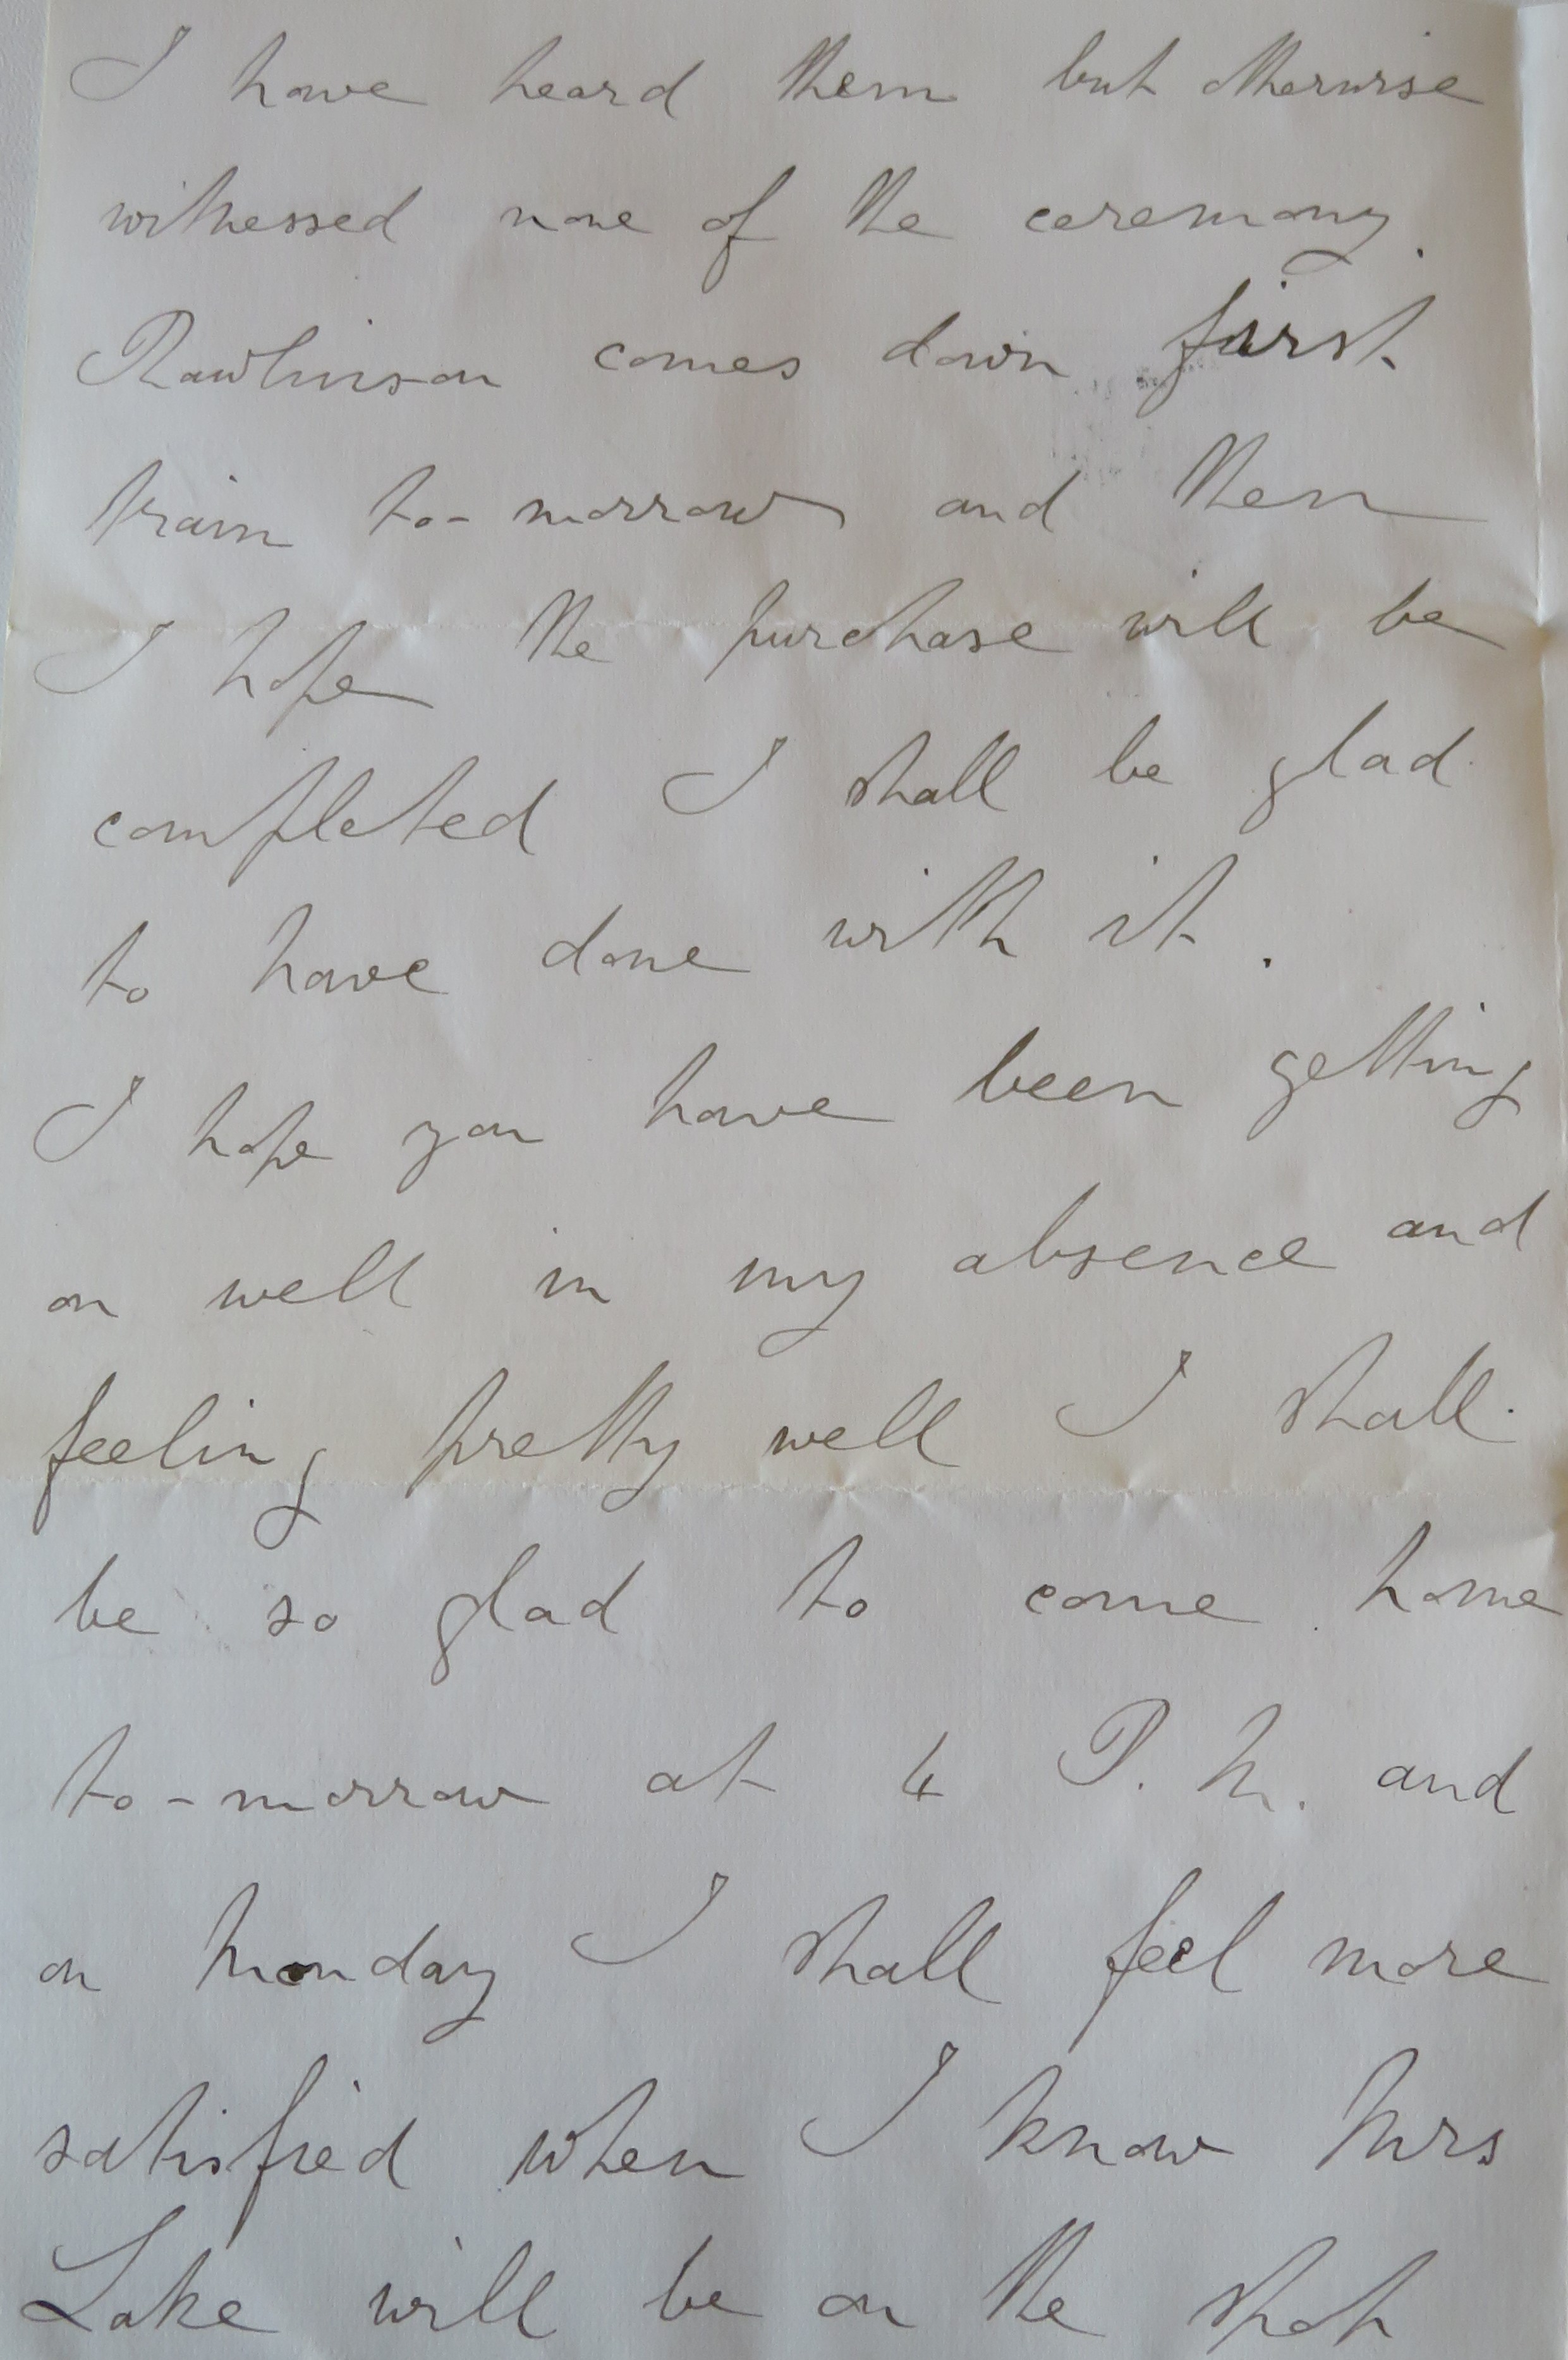 I have heard them but otherwise
witnessed none of the ceremony.
Rawlinson comes down first
train to-morrow and then
I hope the purchase will be
completed I shall be glad
to have done with it.
I hope you have been getting
on well in my absence and
feeling pretty well I shall
be so glad to come home
to-morrow at 4 P.M. and
on Monday I shall feel more
satisfied when I know Mrs
Lake will be on the spot